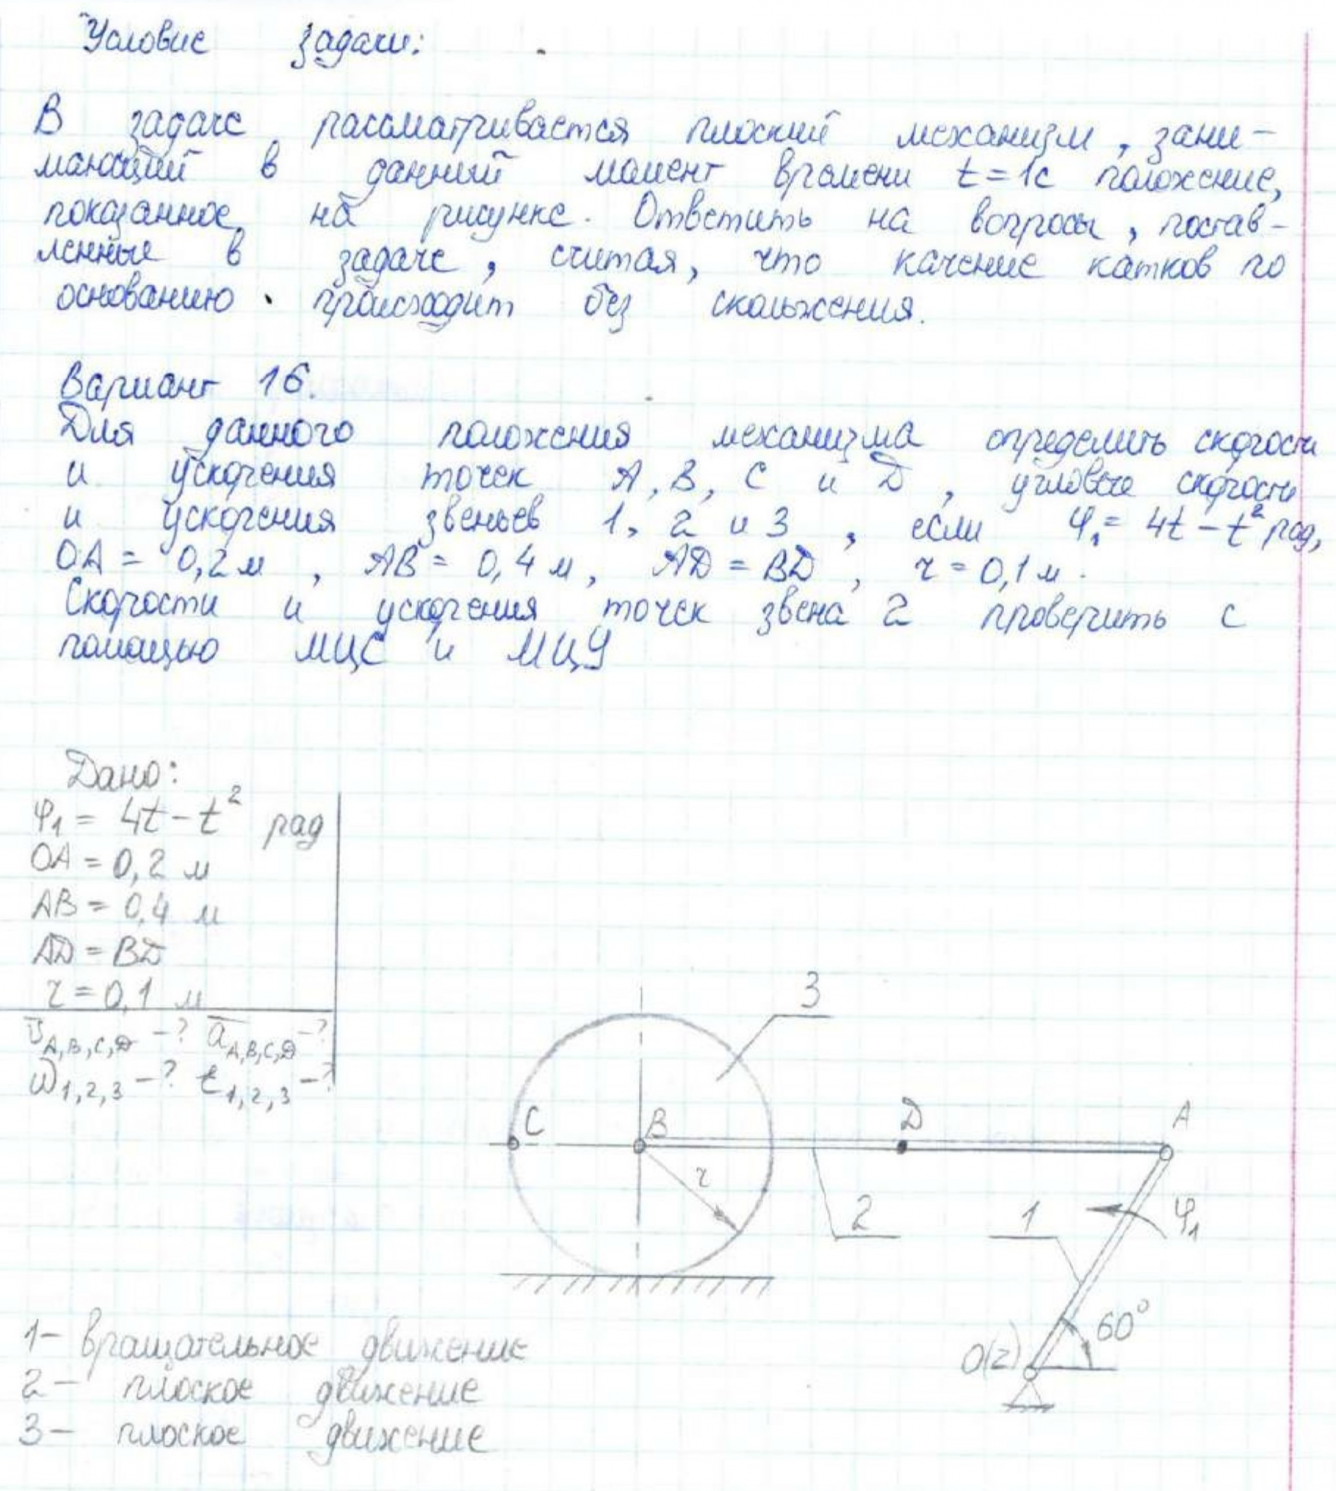 Условие задачи:
В задаче рассматривается плоский механизм, зани-
мающий в данный момент времени t = 1с положение,
показанное на рисунке. Ответить на вопросы, постав-
ленные в задаче, считая, что качение катков по
основанию происходит без скольжения.
Вариант 16.
Для данного положения механизма определить скорости
и ускорения точек A, B, C и D, угловые скорости
и ускорения звеньев 1, 2 и 3, если φ₁ = 4t - t² рад,
OA = 0,2 м, AB = 0,4 м, AD = BD, r = 0,1 м.
Скорости и ускорения точек звена 2 проверить с
помощью МЦС и МЦУ
Дано:
φ₁ = 4t - t² рад
OA = 0,2 м
AB = 0,4 м
AD = BD
r = 0,1 м
v̅A,B,C,D -? a̅A,B,C,D -?
ω̅1,2,3 -? ε̅1,2,3 -?
3
C
B
D
A
r
2
1
φ₁
60°
O(z)
1- вращательное движение
2- плоское движение
3- плоское движение